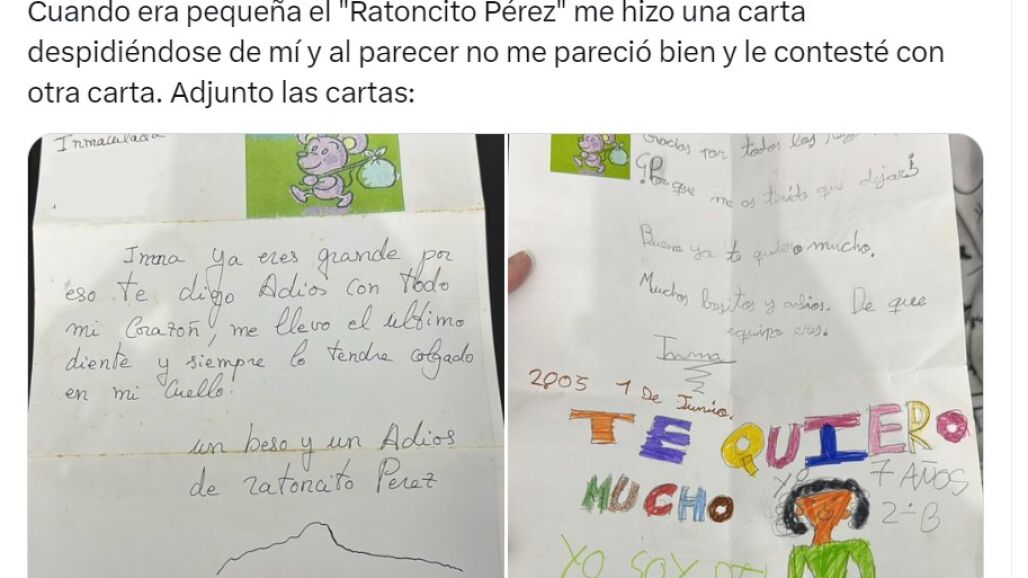 Cuando era pequeña el "Ratoncito Pérez" me hizo una carta
despidiéndose de mí y al parecer no me pareció bien y le contesté con
otra carta. Adjunto las cartas:
Inmaculada
Inma ya eres grande por
eso te digo Adios con todo
mi Corazoñ, me llevo el ultimo
diente y siempre lo tendre colgado
en mi Cuello.
un beso y un Adios
de ratoncito Perez
Gracias por todos los
¿Por que me os tenido que dejar?
Buena ya te quiero mucho.
Muchos besitos y adios. De que
equipo eres.
Inma
2005 1 De Junio.
TE QUIERO
MUCHO
YO
7 AÑOS
2÷B
YO SOY DEL